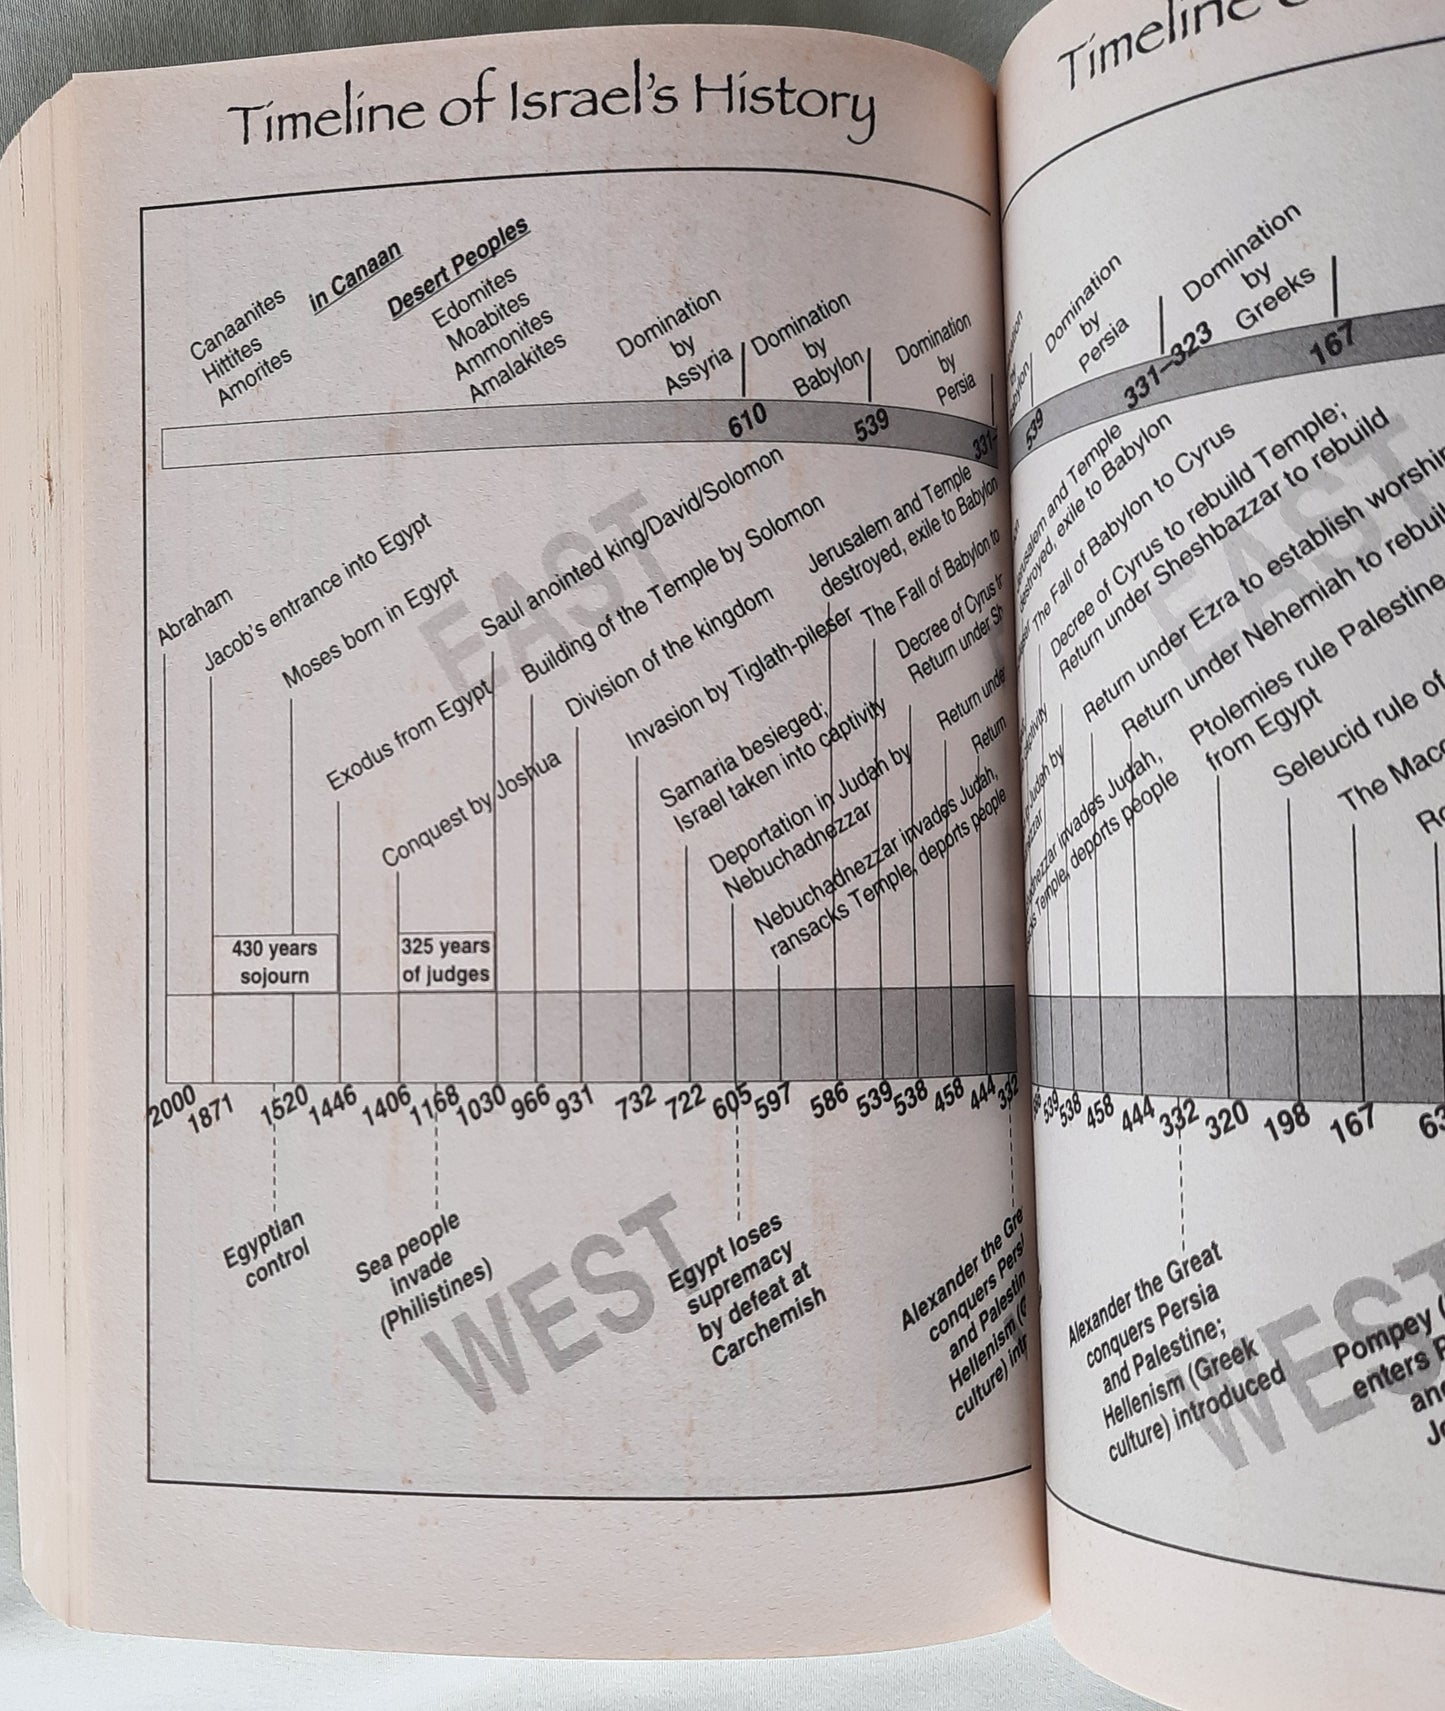 Timeline of Israel's History
in Canaan
Canaanites
Hittites
Amorites
Desert Peoples
Edomites
Moabites
Ammonites
Amalakites
Domination
by
Assyria
Domination
by
Babylon
Domination
by
Persia
610
539
331–
EAST
Abraham
Jacob's entrance into Egypt
Moses born in Egypt
Exodus from Egypt
Conquest by Joshua
Saul anointed king/David/Solomon
Building of the Temple by Solomon
Division of the kingdom
Invasion by Tiglath-pileser
Samaria besieged;
Israel taken into captivity
Deportation in Judah by
Nebuchadnezzar
Nebuchadnezzar invades Judah,
ransacks Temple, deports people
Jerusalem and Temple
destroyed, exile to Babylon
The Fall of Babylon to
Decree of Cyrus
Return under
Return under
Return
430 years
sojourn
325 years
of judges
2000
1871
1520
1446
1406
1168
1030
966
931
732
722
605
597
586
539
538
458
444
332
Egyptian
control
Sea people
invade
(Philistines)
WEST
Egypt loses
supremacy
by defeat at
Carchemish
Alexander the
conquers
and
Hellenism
culture)
Timeline
Domination
by
Persia
Domination
by
Greeks
539
331–323
167
EAST
and Temple
exile to Babylon
The Fall of Babylon to Cyrus
Decree of Cyrus to rebuild Temple;
Return under Sheshbazzar to rebuild
Return under Ezra to establish
Return under Nehemiah to
invades Judah,
Temple, deports people
Ptolemies rule Palestine
from Egypt
Seleucid rule of
The
539
538
458
444
332
320
198
167
63
Alexander the Great
conquers Persia
and Palestine;
Hellenism (Greek
culture) introduced
WEST
Pompey
enters